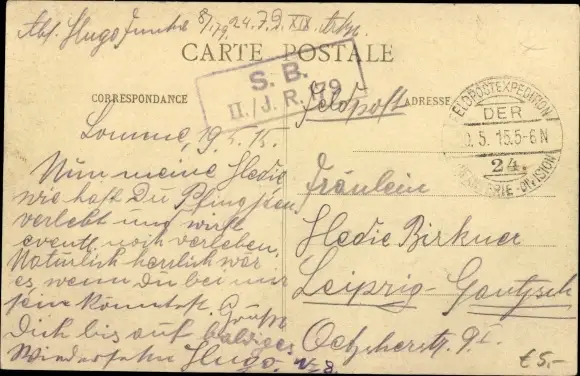 Abs. Hugo 8/179 24. J.D. XIX. A.K.
CARTE POSTALE
S. B.
II./J. R. 179
CORRESPONDANCE
Feldpost
ADRESSE
FELDPOSTEXPEDITION
DER
5. 15. 5-6 N
24.
INFANTERIE-DIVISION
Lomme, 19.5.15.
Nun meine Hedie
wie hast Du Pfingsten
verlebt und wirst
eventl. noch verleben.
Natürlich herrlich wär
es, wenn Du bei mir
sein könntest. Gruß
Dich bis auf baldiges
Wiedersehn Hugo.
Fräulein
Hedie Birkner
Leipzig-Gautzsch
Oetzscherstr. 9 I.
€5.-